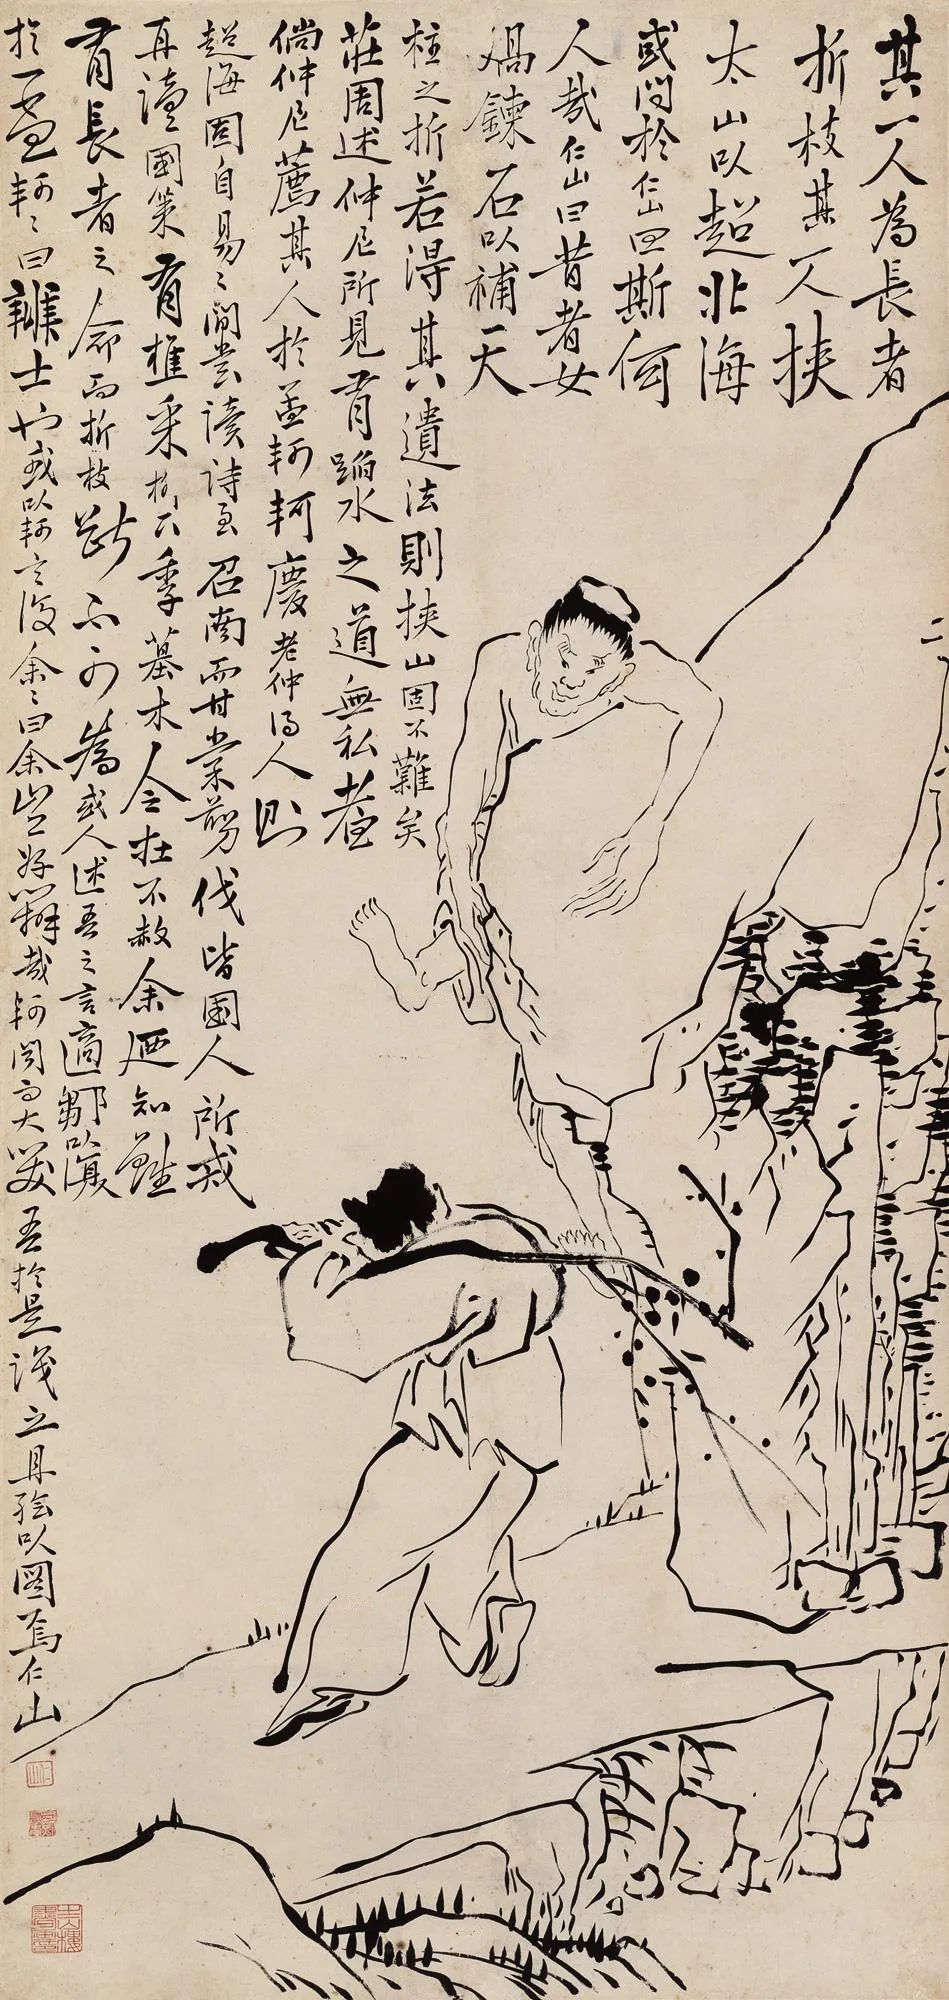 其一人為長者
折枝其一人挾
太山以超北海
或問於仁山曰斯何
人哉仁山曰昔者女
媧鍊石以補天
柱之折若得其遺法則挾山固不難矣
莊周述仲尼所見有蹈水之道無私者
倘仲尼薦其人於孟軻軻慶老仲得人則
超海固自易易間嘗讀詩至召南而甘棠翦伐皆國人所戒
再讀國策有樵采柳下季墓木令在不赦余迺知雖
有長者之命而折枝斷不可為或人述吾之言適鄒以
於孟軻軻曰辯士也或以軻言復余余曰余豈好辯哉軻聞而大笑吾於是識之且繪以圖焉仁山